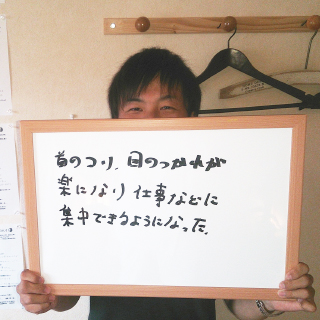 首のコリ、目のつかれが
楽になり仕事などに
集中できるようになった。